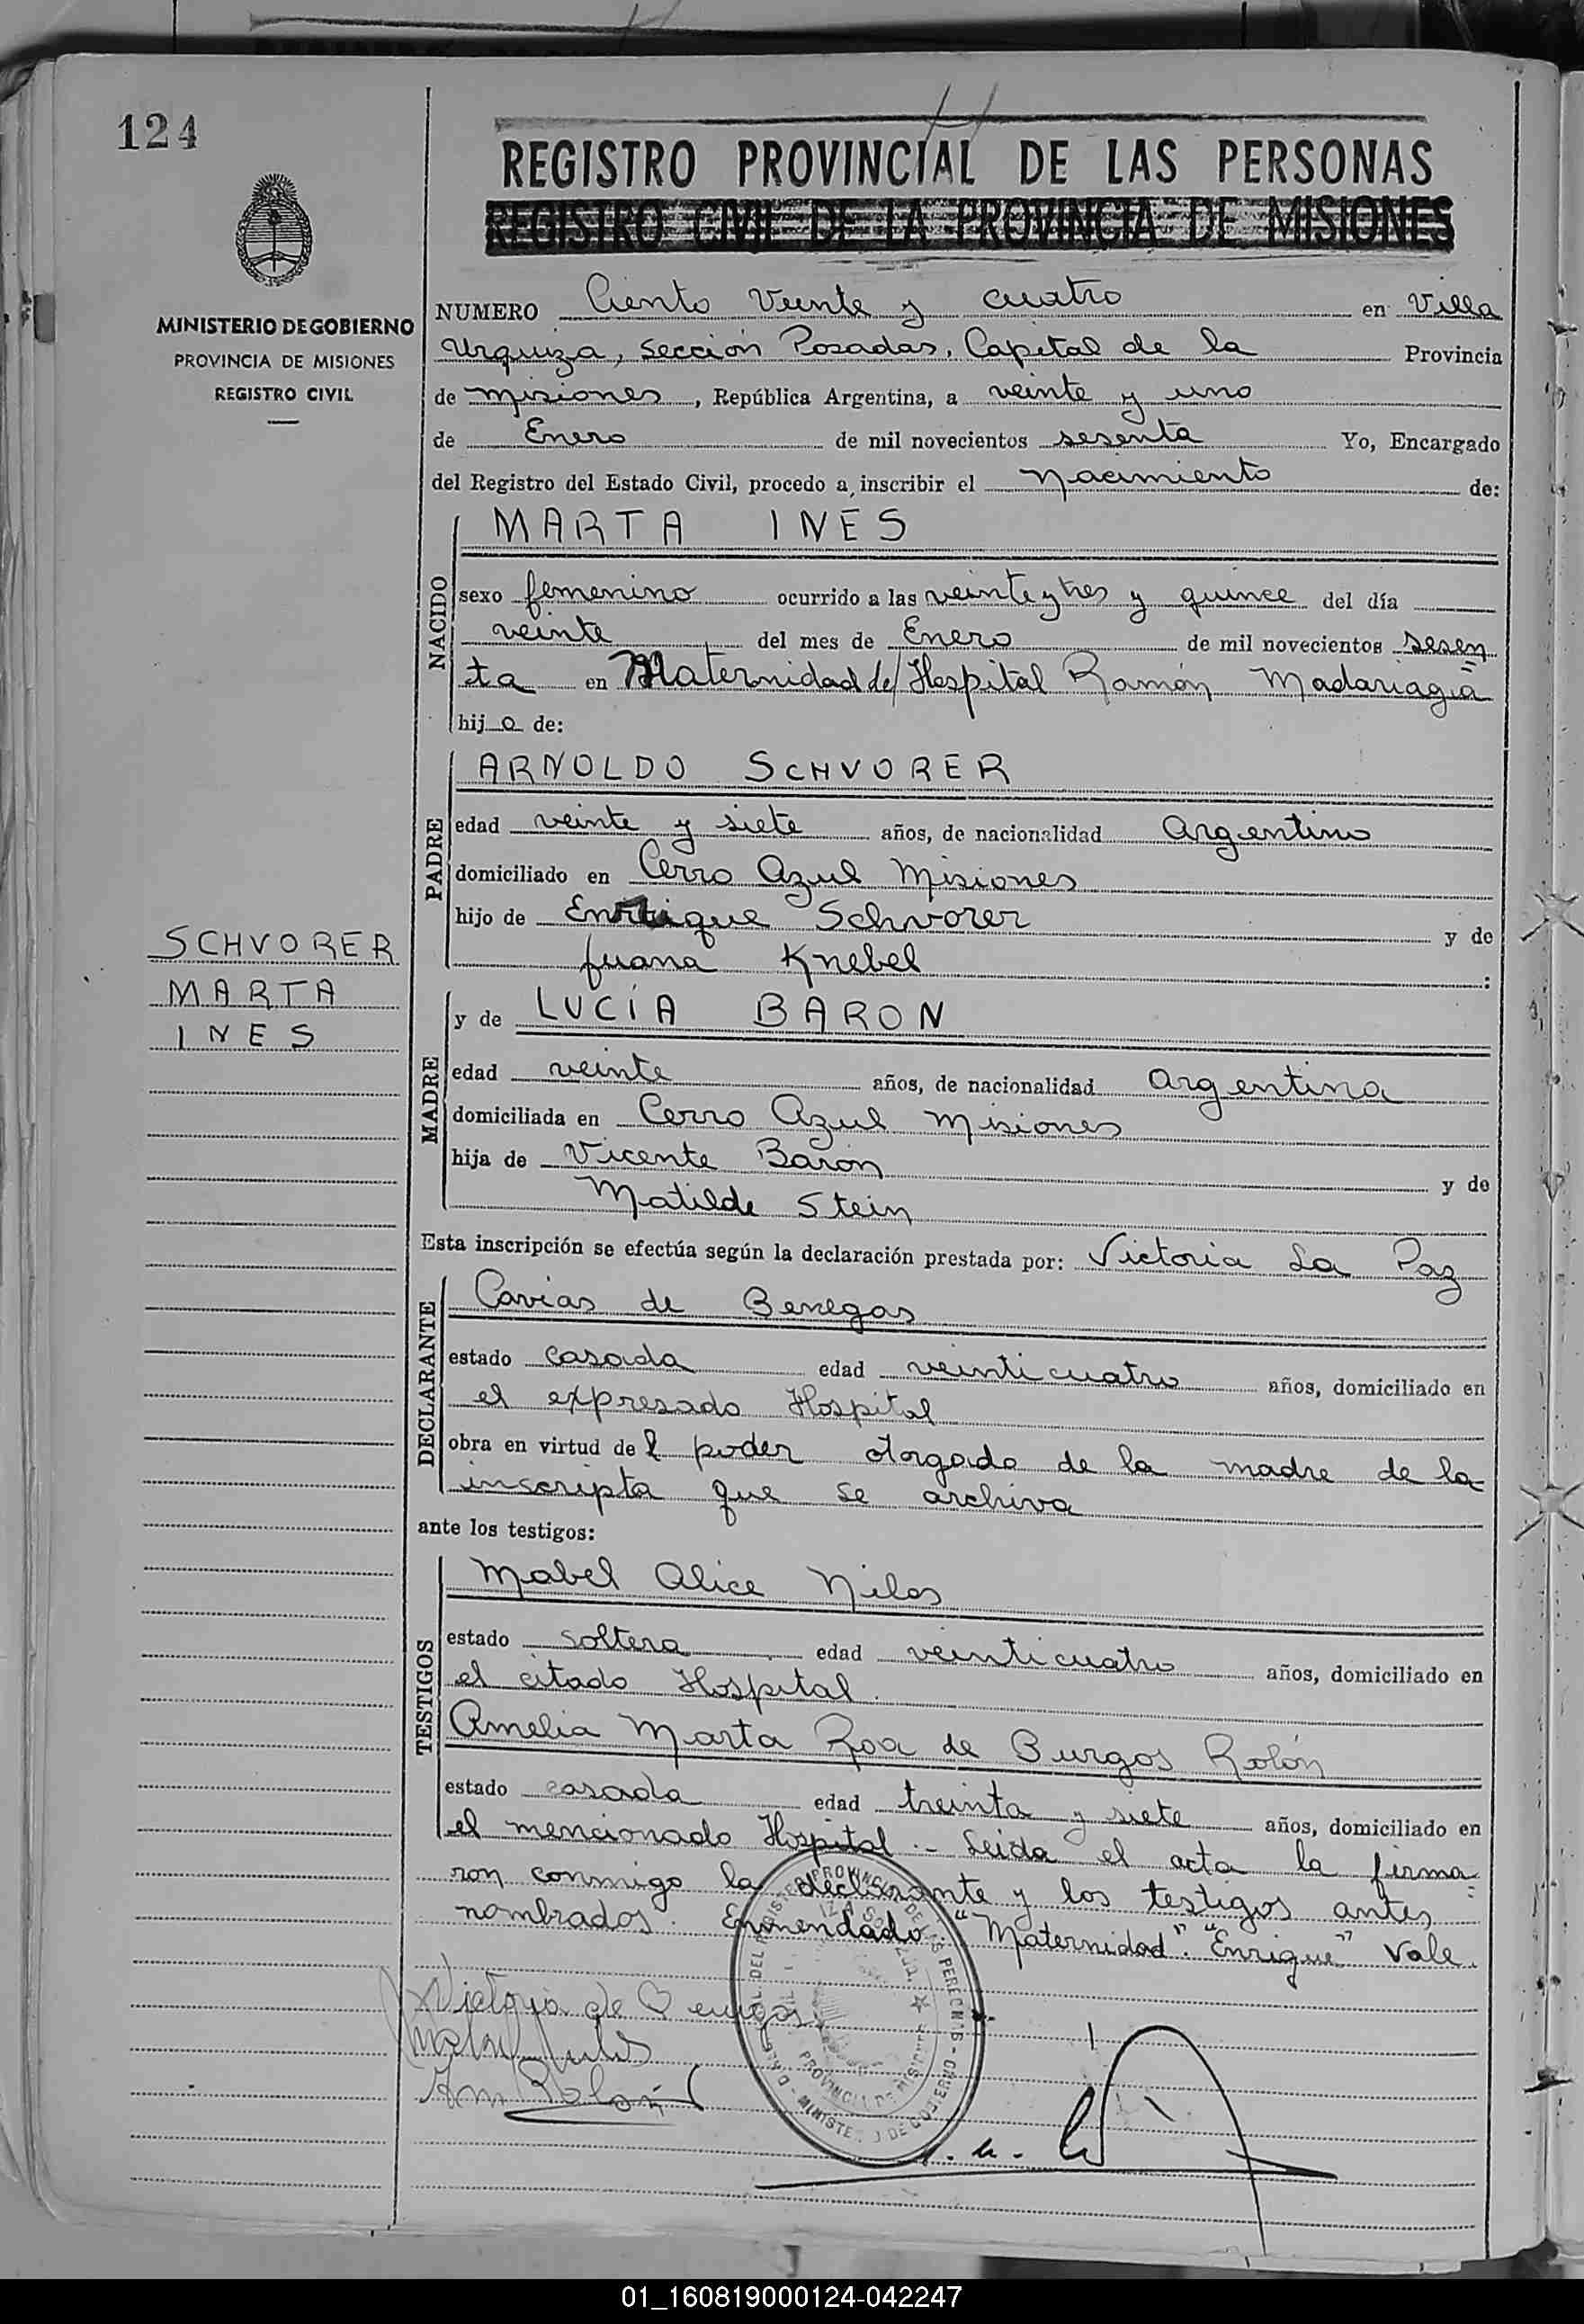 124
MINISTERIO DE GOBIERNO
PROVINCIA DE MISIONES
REGISTRO CIVIL
SCHVORER
MARTA
INES
REGISTRO PROVINCIAL DE LAS PERSONAS
REGISTRO CIVIL DE LA PROVINCIA DE MISIONES
NUMERO Ciento Veinte y cuatro en Villa
Urquiza, sección Posadas, Capital de la Provincia
de misiones, República Argentina, a veinte y uno
de Enero de mil novecientos sesenta Yo, Encargado
del Registro del Estado Civil, procedo a inscribir el nacimiento de:
NACIDO
MARTA INES
sexo femenino ocurrido a las veinte y tres y quince del día
veinte del mes de Enero de mil novecientos sesen
ta en Maternidad del Hospital Ramón Madariaga
hij a de:
PADRE
ARNOLDO SCHVORER
edad veinte y siete años, de nacionalidad Argentino
domiciliado en Cerro Azul Misiones
hijo de Enrique Schvorer y de
Juana Knebel :
MADRE
y de LUCÍA BARON
edad veinte años, de nacionalidad argentina
domiciliada en Cerro Azul misiones
hija de Vicente Baron y de
Matilde Stein
Esta inscripción se efectúa según la declaración prestada por: Victoria La Paz
DECLARANTE
Cavias de Benegas
estado casada edad veinticuatro años, domiciliado en
el expresado Hospital
obra en virtud de l poder otorgado de la madre de la
inscripta que se archiva
ante los testigos:
TESTIGOS
Mabel Alice Niles
estado soltera edad veinticuatro años, domiciliado en
el citado Hospital.
Amelia Marta Roa de Burgos Rolón
estado casada edad treinta y siete años, domiciliado en
el mencionado Hospital - Leida el acta la firma=
ron conmigo la declarante y los testigos antes
nombrados. Enmendado: "Maternidad". "Enrique" Vale.
01_160819000124-042247